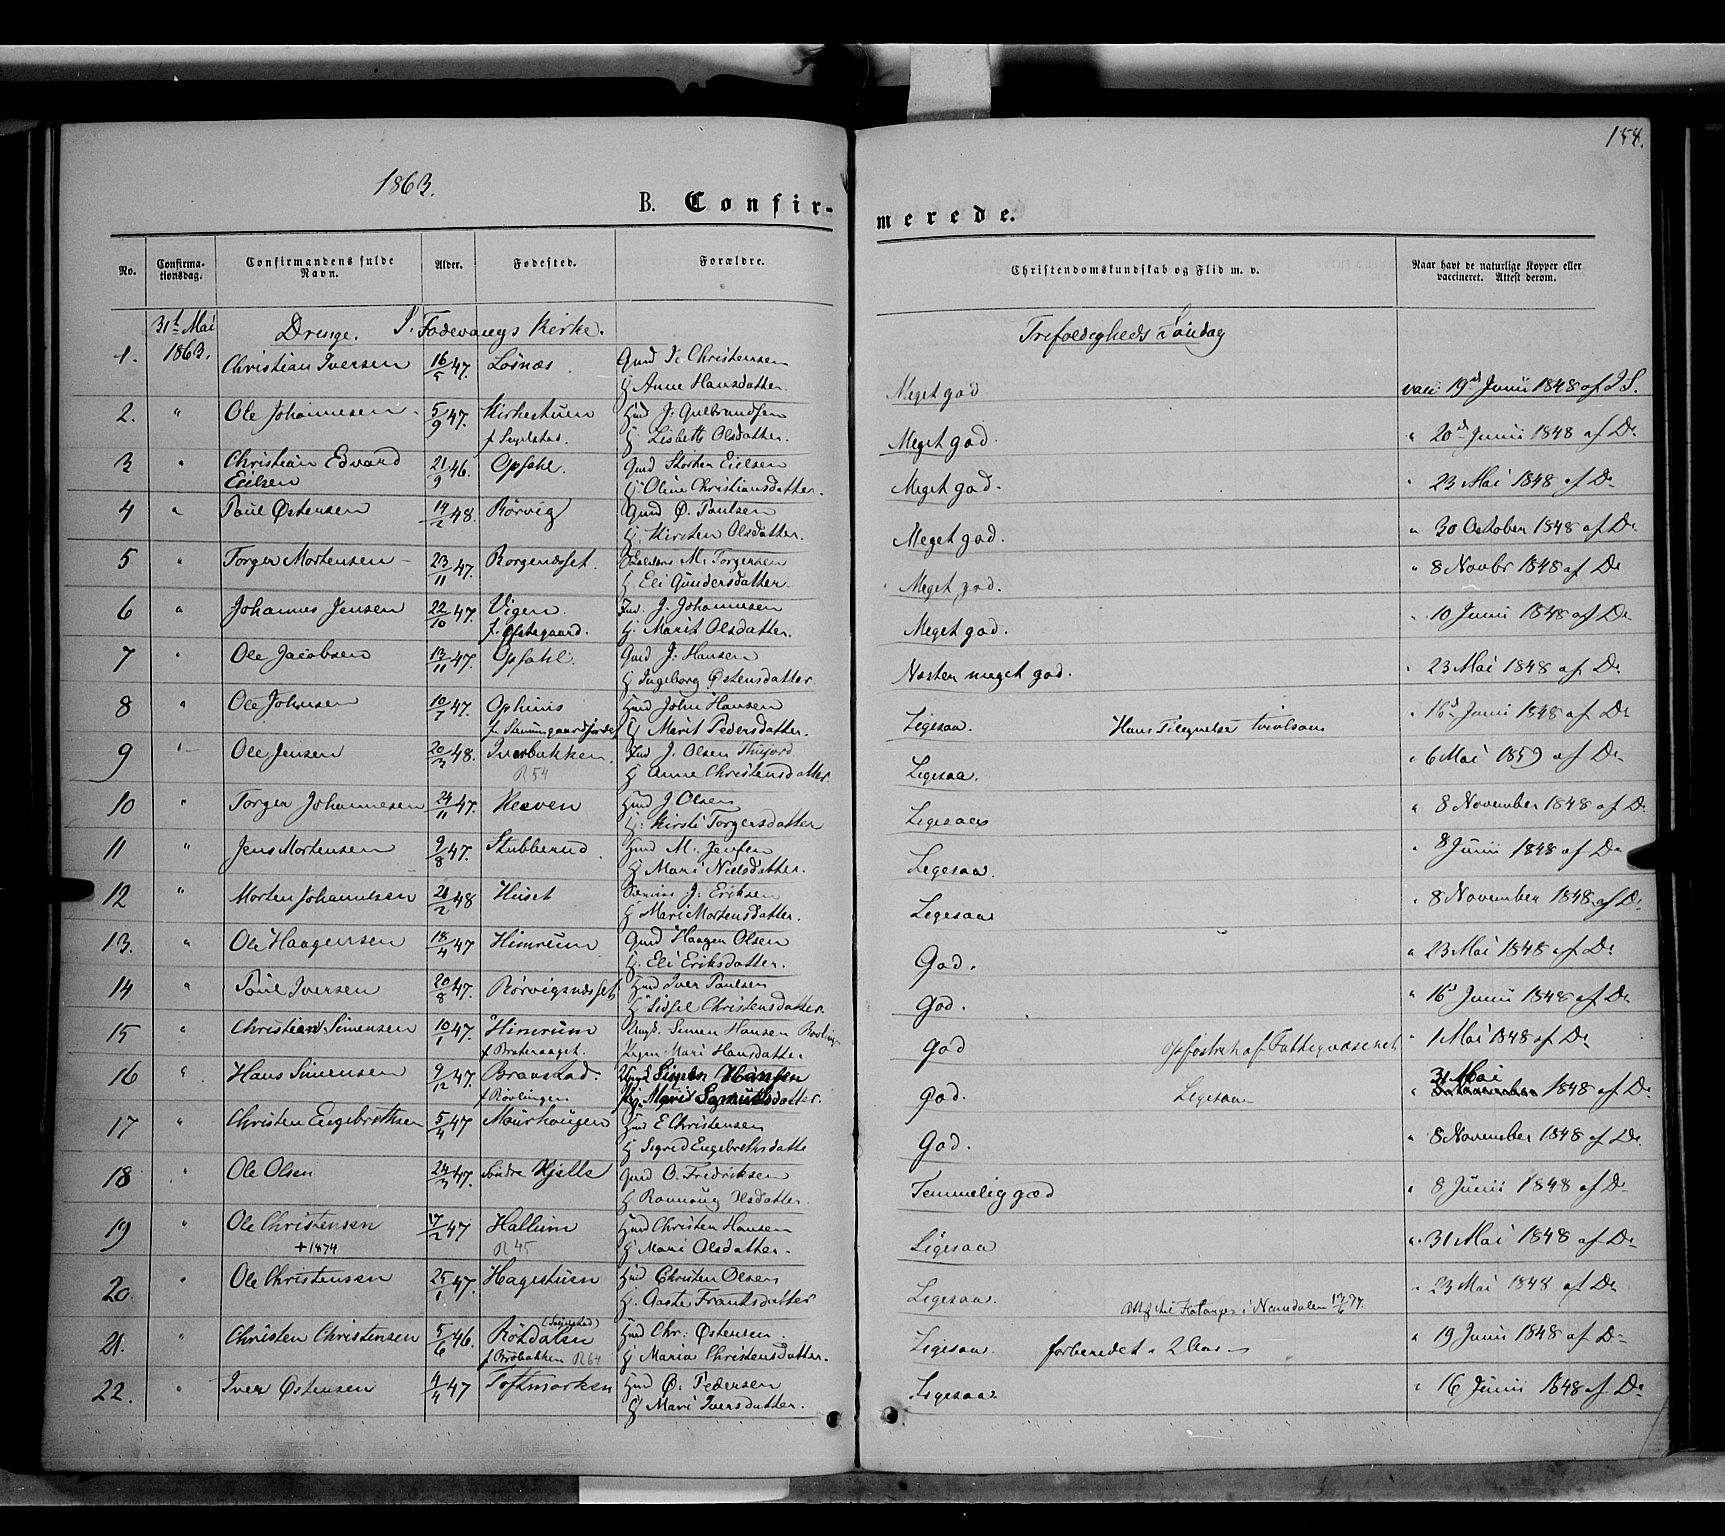 1863.
158.
B. Confir-
merede.
No.
Confirma-
tionsdag.
Confirmandens fulde
Navn.
Alder.
Fødested.
Forældre.
Christendomskundskab og Flid m. v.
Naar havt de naturlige Kopper eller
vaccineret. Attest derom.
31t Mai
1863.
Drenge. I. Fodevangs Kirke.
Trefoldigheds Søndag
1. Christian Iversen 16/5 47. Losnæs. Gmd I. Christensen
G Anne Hansdatter. Meget god vac: 19de Junii 1848 af I S.
2. " Ole Johannesen 5/9 47. Kirkestuen Hmd J. Gulbrandsen
f Segelstad. G Lisbeth Olsdatter. Meget god. " 20de Junii 1848 af Do
3 " Christian Edvard 21/9 46. Opsahl. Gmd Storker Eielsen
Eielsen G: Oline Christiansdatter. Meget god. " 23 Mai 1848 af Do
4 " Poul Østensen 14/2 48. Rörvig Gmd Ø. Paulsen
G. Kirsten Olsdatter. Meget god. " 30 October 1848 af Do
5 " Torger Mortensen 23/11 47. Borgendset. M. Torgersen
G Eli Gundersdatter. Meget god. " 8 Novbr 1848 af Do
6 " Johannes Jensen 22/10 47. Vigen. Ind. J. Johannesen
f. Østegaard. G. Marit Olsdatter. Meget god. " 10 Junii 1848 af Do
7 " Ole Jacobsen 13/11 47. Opsahl. Gmd J. Hansen
G Ingeborg Østensdatter Næsten meget god. " 23 Mai 1848 af Do
8 " Ole Johnsen 10/7 47. Ophuus Hmd John Hansen
G Marit Pedersdatter. Ligesaa. Hans Tilegnelse tvivlsom " 16de Junii 1848 af Do
9 Ole Jensen 20/3 48. Iverbakken. Ind J. Olsen
R 54 G Anne Christensdatter Ligesaa. " 6 Mai 1859 af Do
10 " Torger Johannesen 24/11 47. Hmd J. Olsen
G: Kirsti Torgersdatter Ligesaa " 8 November 1848 af Do
11 " Jens Mortensen 9/8 47. Stubberud. Hmd M. Jensen
G Mari Nielsdatter. Ligesaa. " 8 Junii 1848 af Do
12 " Morten Johannesen 21/2 48 Huset J. Eriksen
G Mari Mortensdatter. Ligesaa " 8 November 1848 af Do
13. " Ole Haagensen 18/4 47 Himrum Gmd Haagen Olsen
G. Eli Eriksdatter. God. " 23 Mai 1848 af Do
14 " Poul Iversen 20/8 47. Rörvigsnædset Hmd Iver Paulsen
G Sidsel Christensdatter. God. " 16de Junii 1848 af Do
15 " Christian Simensen 10/1 47. Himrum Ungk. Simen Hansen Rovling
f Brateraaget. Pigen Mari Hansdatter God Opfostret af Fattigvæsenet " 1 Mai 1848 af Do
16 " Hans Simensen 9/12 47. Branstad. Ungk Simen Hansen
f Rövlingen Pig. Marit Samuelsdatter. God. Ligesaa 31 Mai
" 1848 af Do
17 " Christen Engebrethsen 5/4 47 Maurhaugen Hmd E Christensen
G Sigrid Engebrethsdatte God. " 8 November 1848 af Do
18 " Ole Olsen 24/3 47. Söndre Kjelle Gmd O. Fredriksen
G Rannoug Olsdatter. Temmelig god " 8 Junii 1848 af Do
19 " Ole Christensen 17/2 47 Hallum Hmd Christen Hansen
+ 1874 R 45 G Mari Olsdatter. Ligesaa " 31 Mai 1848 af Do
20 " Ole Christensen 25/1 47. Hagestuen Hmd Christen Olsen
G. Frantsdatter Ligesaa. " 23 Mai 1848 af Do
i Namdalen 77.
21. " Christen Christensen 5/6 46. Rösdalen Hmd Chr. Østensen.
f Brobakken R 64 G Maria Christensdatter. Ligesaa forberedet i 2 Aar " 19 Junii 1848 af Do
22. " Iver Østensen 4/4 47 Toftmarken Hmd Ø. Pedersen
G Mari Iversdatter. Ligesaa " 16 Junii 1848 af Do